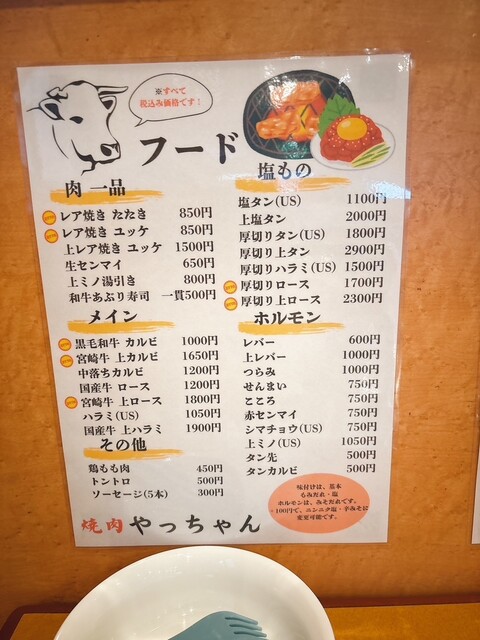 ※すべて
税込み価格です！
フード
肉 一品
レア焼き たたき 850円
レア焼き ユッケ 850円
上レア焼き ユッケ 1500円
生センマイ 650円
上ミノ湯引き 800円
和牛あぶり寿司 一貫500円
メイン
黒毛和牛 カルビ 1000円
宮崎牛 上カルビ 1650円
中落ちカルビ 1200円
国産牛 ロース 1200円
宮崎牛 上ロース 1800円
ハラミ(US) 1050円
国産牛 上ハラミ 1900円
その他
鶏もも肉 450円
トントロ 500円
ソーセージ(5本) 300円
塩もの
塩タン(US) 1100円
上塩タン 2000円
厚切りタン(US) 1800円
厚切り上タン 2900円
厚切りハラミ(US) 1500円
厚切りロース 1700円
厚切り上ロース 2300円
ホルモン
レバー 600円
上レバー 1000円
つらみ 1000円
せんまい 750円
こころ 750円
赤センマイ 750円
シマチョウ(US) 750円
上ミノ(US) 1050円
タン先 500円
タンカルビ 500円
味付けは、基本
もみだれ・塩
ホルモンは、みそだれです。
+100円で、ニンニク塩・辛みそに
変更可能です。
焼肉 やっちゃん